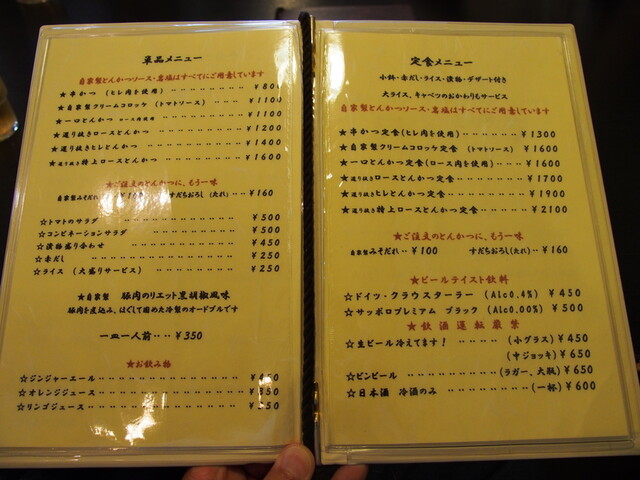 単品メニュー
自家製とんかつソース・岩塩はすべてにご用意しています
★串かつ (ヒレ肉を使用) ¥800
★自家製クリームコロッケ (トマトソース) ¥1100
★一口とんかつ ロース肉使用 ¥1100
★選り抜きロースとんかつ ¥1200
★選り抜きヒレとんかつ ¥1400
★選り抜き特上ロースとんかつ ¥1600
☆ご注文のとんかつに、もう一味
自家製みそだれ ¥100 すだちおろし(たれ) ¥160
☆トマトのサラダ ¥500
☆コンビネーションサラダ ¥500
☆漬物盛り合わせ ¥450
☆赤だし ¥250
☆ライス (大盛りサービス) ¥250
★自家製 豚肉のリエット黒胡椒風味
豚肉を煮込み、ほぐして固めた冷製のオードブルです
一皿一人前 ¥350
★お飲み物
☆ジンジャーエール
☆オレンジジュース ¥350
☆リンゴジュース ¥350
定食メニュー
小鉢・赤だし・ライス・漬物・デザート付き
大ライス、キャベツのおかわりもサービス
自家製とんかつソース・岩塩はすべてにご用意しています
★串かつ定食(ヒレ肉を使用) ¥1300
★自家製クリームコロッケ定食 (トマトソース) ¥1600
★一口とんかつ定食(ロース肉を使用) ¥1600
★選り抜きロースとんかつ定食 ¥1700
★選り抜きヒレとんかつ定食 ¥1900
★選り抜き特上ロースとんかつ定食 ¥2100
★ご注文のとんかつに、もう一味
自家製みそだれ ¥100 すだちおろし(たれ) ¥160
★ビールテイスト飲料
☆ドイツ・クラウスターラー (Alc0.4%) ¥450
☆サッポロプレミアム ブラック (Alc0.00%) ¥500
★飲酒運転厳禁
☆生ビール冷えてます! (小グラス) ¥450
(中ジョッキ) ¥650
☆ビンビール (ラガー、大瓶) ¥650
☆日本酒 冷酒のみ (一杯) ¥600